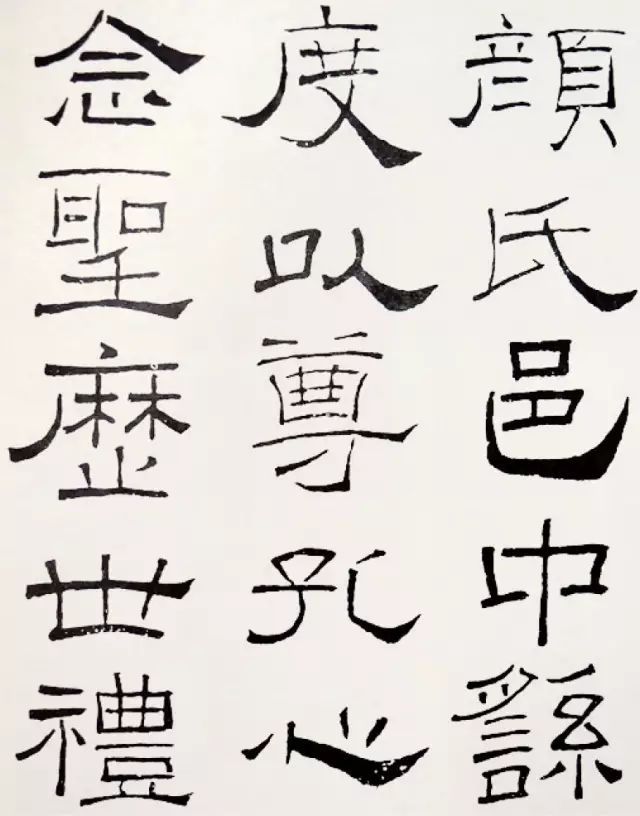 顏氏邑中繇
度以尊孔心
念聖歷世禮